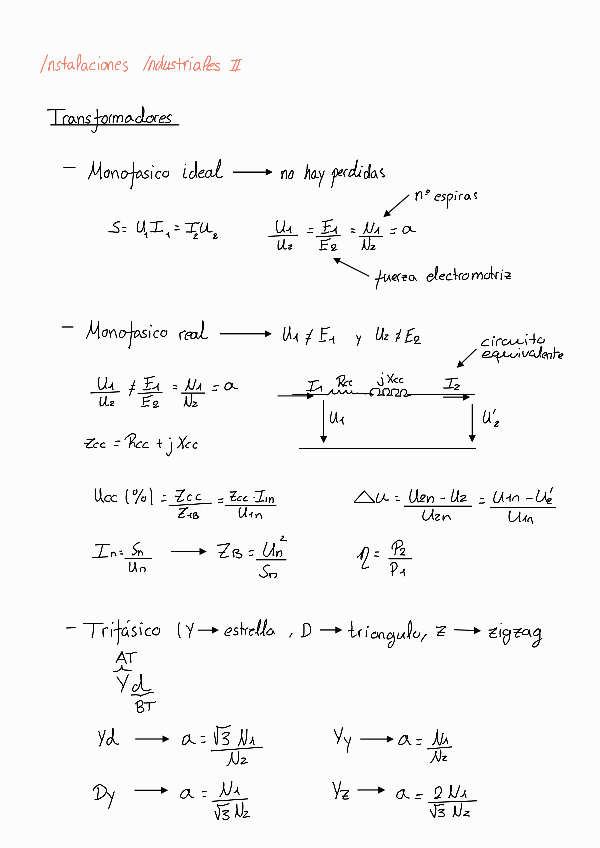 Instalaciones Industriales II
Transformadores
- Monofasico ideal → no hay perdidas
nº espiras
S = U₁I₁ = I₂U₂
U₁/U₂ = E₁/E₂ = N₁/N₂ = a
fuerza electromotriz
- Monofasico real → U₁ ≠ E₁ y U₂ ≠ E₂
circuito
equivalente
U₁/U₂ ≠ E₁/E₂ = N₁/N₂ = a
I₁ Rcc jXcc I₂
U₁ U'₂
Zcc = Rcc + j Xcc
Ucc (%) = Zcc/Z₁B = Zcc · I₁n/U₁n
Δu = (U₂n - U₂)/U₂n = (U₁n - U₂')/U₁n
In = Sn/Un → ZB = Un²/Sn
η = P₂/P₁
- Trifásico (Y → estrella , D → triangulo, Z → zigzag
AT
Yd
BT
Yd → a = √3 N₁/N₂
Yy → a = N₁/N₂
Dy → a = N₁/√3 N₂
Yz → a = 2 N₁/√3 N₂